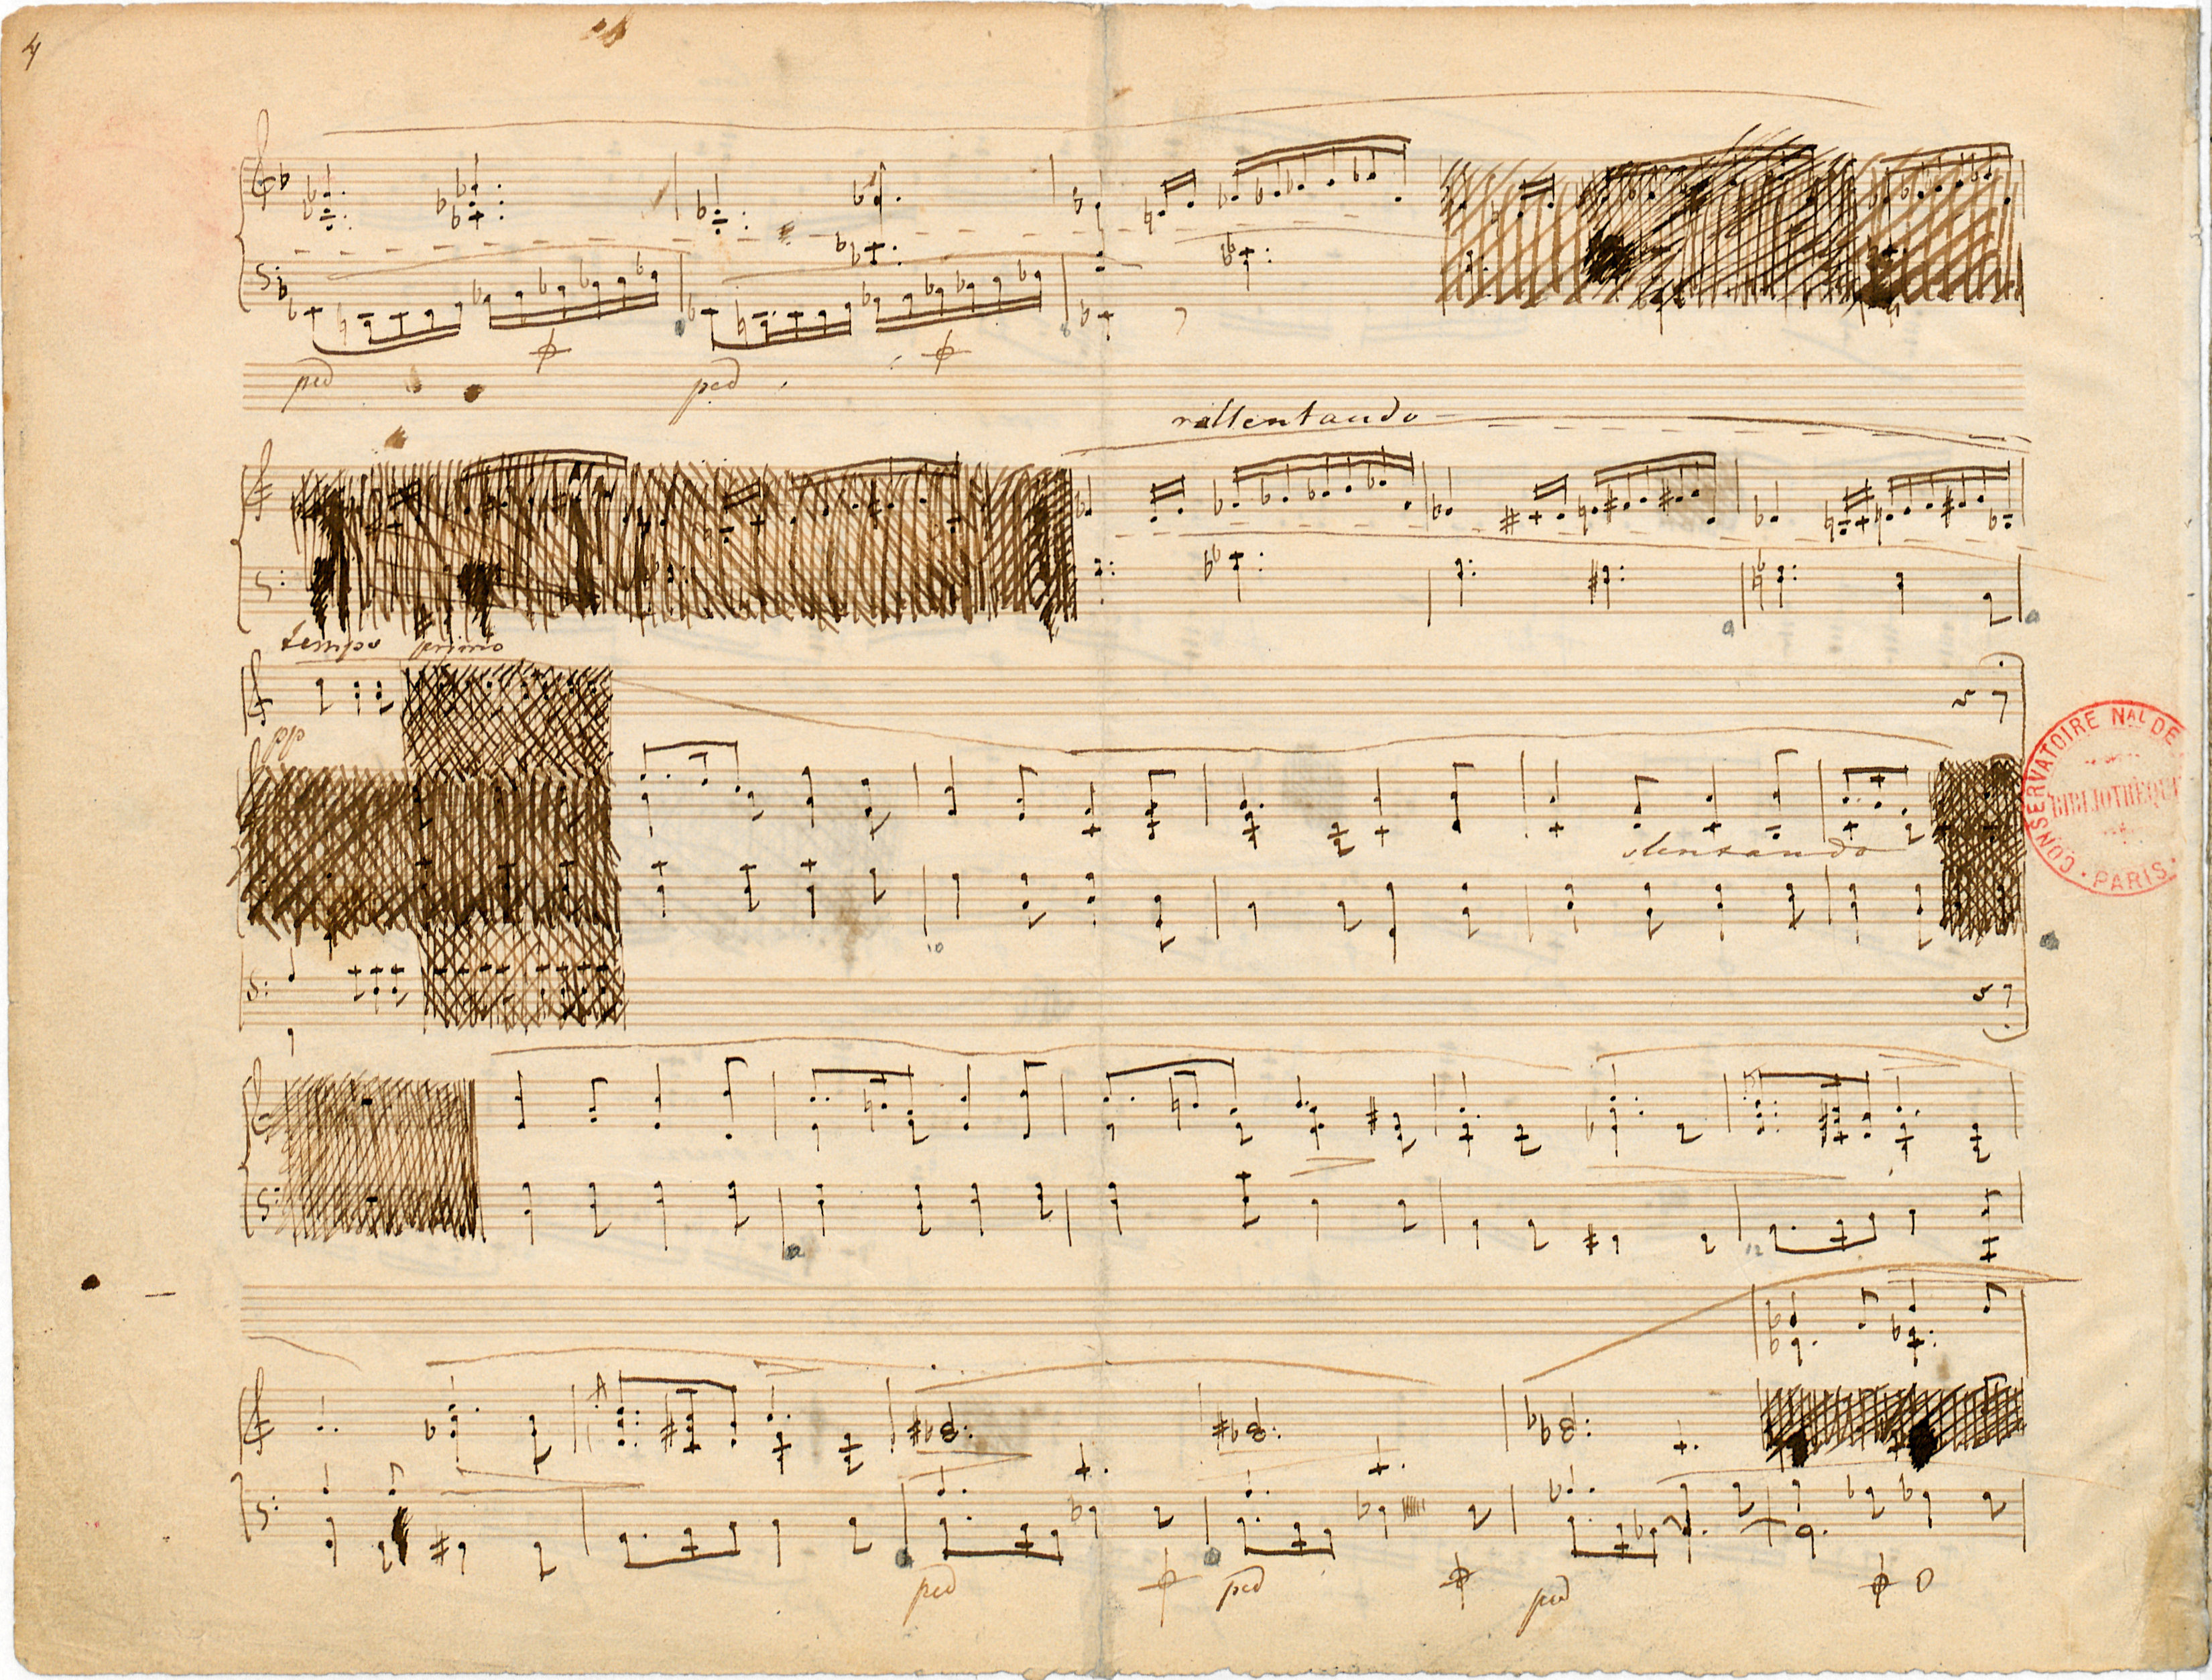 4
ped ped
rallentando
tempo primo
pp
slentando
10
12
ped ped ped
CONSERVATOIRE NAL DE
BIBLIOTHÈQUE
PARIS